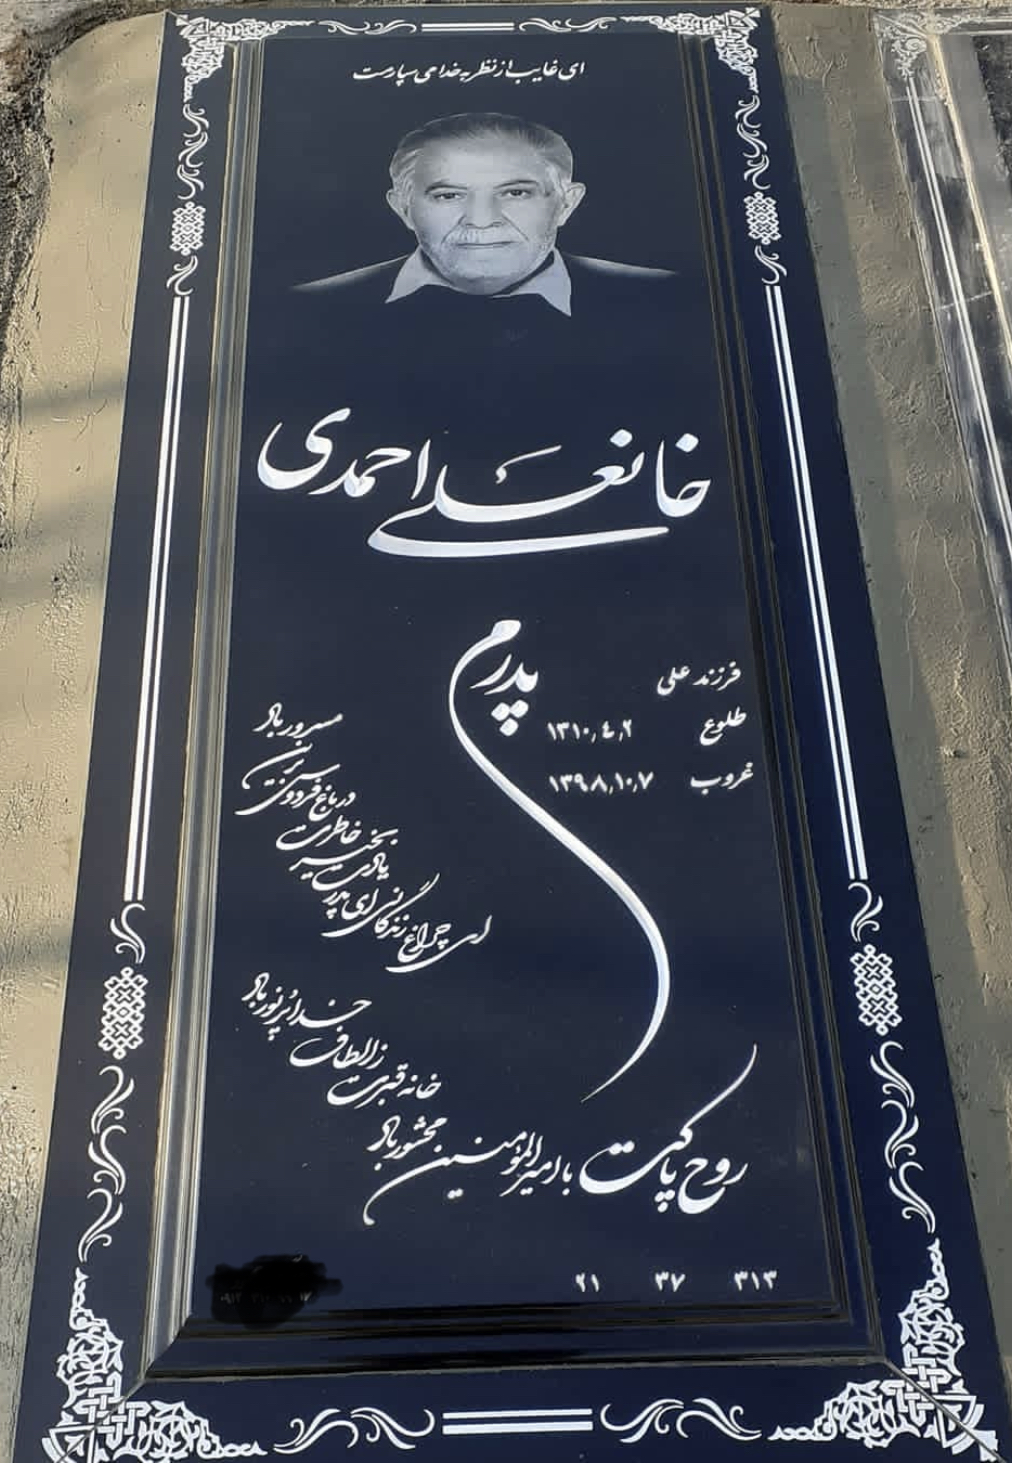 ای غایب از نظر به خدا می سپارمت
خانعلی احمدی
پدرم
فرزند علی
طلوع ۱۳۱۰٫٤٫۲
غروب ۱۳۹۸٫۱۰٫۷
ای چراغ زندگانی ای پدر
یادت بخیر
خاطرت
در باغ فردوس برین
مسرور باد
خانه قبرت
ز الطاف
خدا پرنور باد
روح پاکت با امیرالمؤمنین محشور باد
۳۱۳ ۳۷ ۲۱